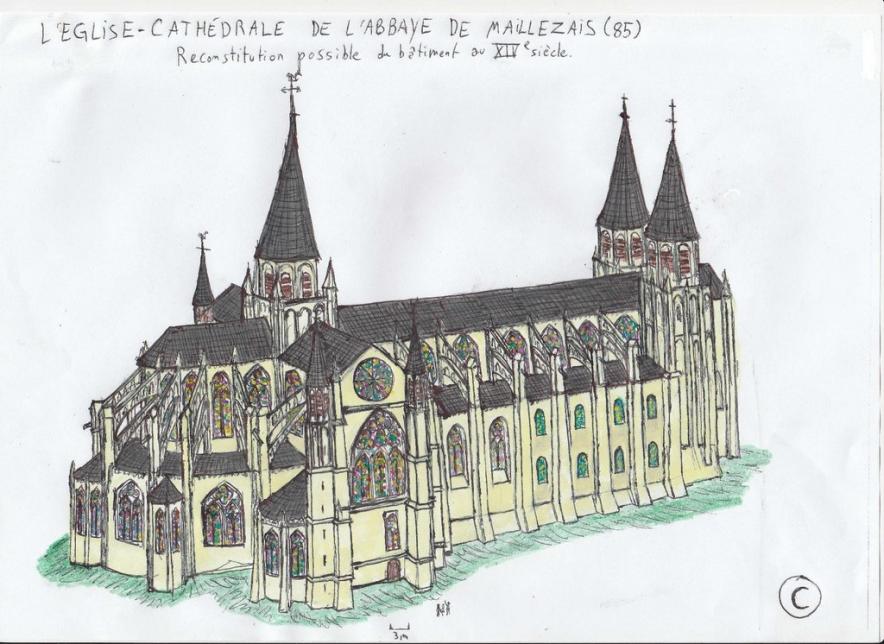 L'EGLISE-CATHÉDRALE DE L'ABBAYE DE MAILLEZAIS (85)
Reconstitution possible du bâtiment au XIVe siècle.
3m
C